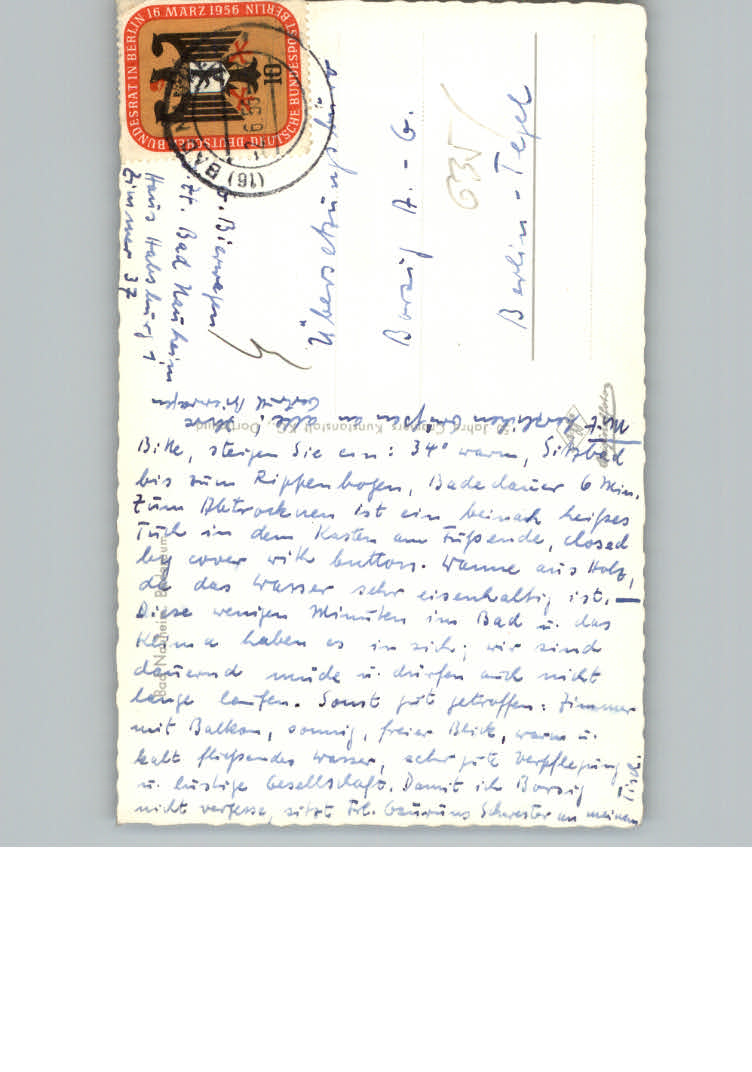 BUNDESRAT IN BERLIN 16 MÄRZ 1956
DEUTSCHE BUNDESPOST BERLIN
10
(16) BAD N
G. Bierwagen
z.Zt. Bad Nauheim
Haus Habsburg
Zimmer 37
Übersetzung
Borsig A.-G.
Berlin-Tegel
635/
Mit herzlichen Grüßen an alle
Gertrud Bierwagen
50 Jahre Cramers Kunstanstalt KG., Dortmund
Originalfoto
Bad Nauheim
Bitte, steigen Sie ein: 34° warm, Sitzbad
bis zum Rippenbogen, Badedauer 6 Min.
Zum Abtrocknen ist ein beinah heißes
Tuch in dem Kasten am Fußende, closed
by cover with button. Wanne aus Holz,
da das Wasser sehr eisenhaltig ist. —
Diese wenigen Minuten im Bad u. das
Klima haben es in sich; wir sind
dauernd müde u. dürfen auch nicht
lange laufen. Sonst gut getroffen: Zimmer
mit Balkon, sonnig, freier Blick, warm u.
kalt fließendes Wasser, sehr gute Verpflegung
u. lustige Gesellschaft. Damit ich Borsig
nicht vergesse, sitzt Frl. Schwester an meinem
Tisch.